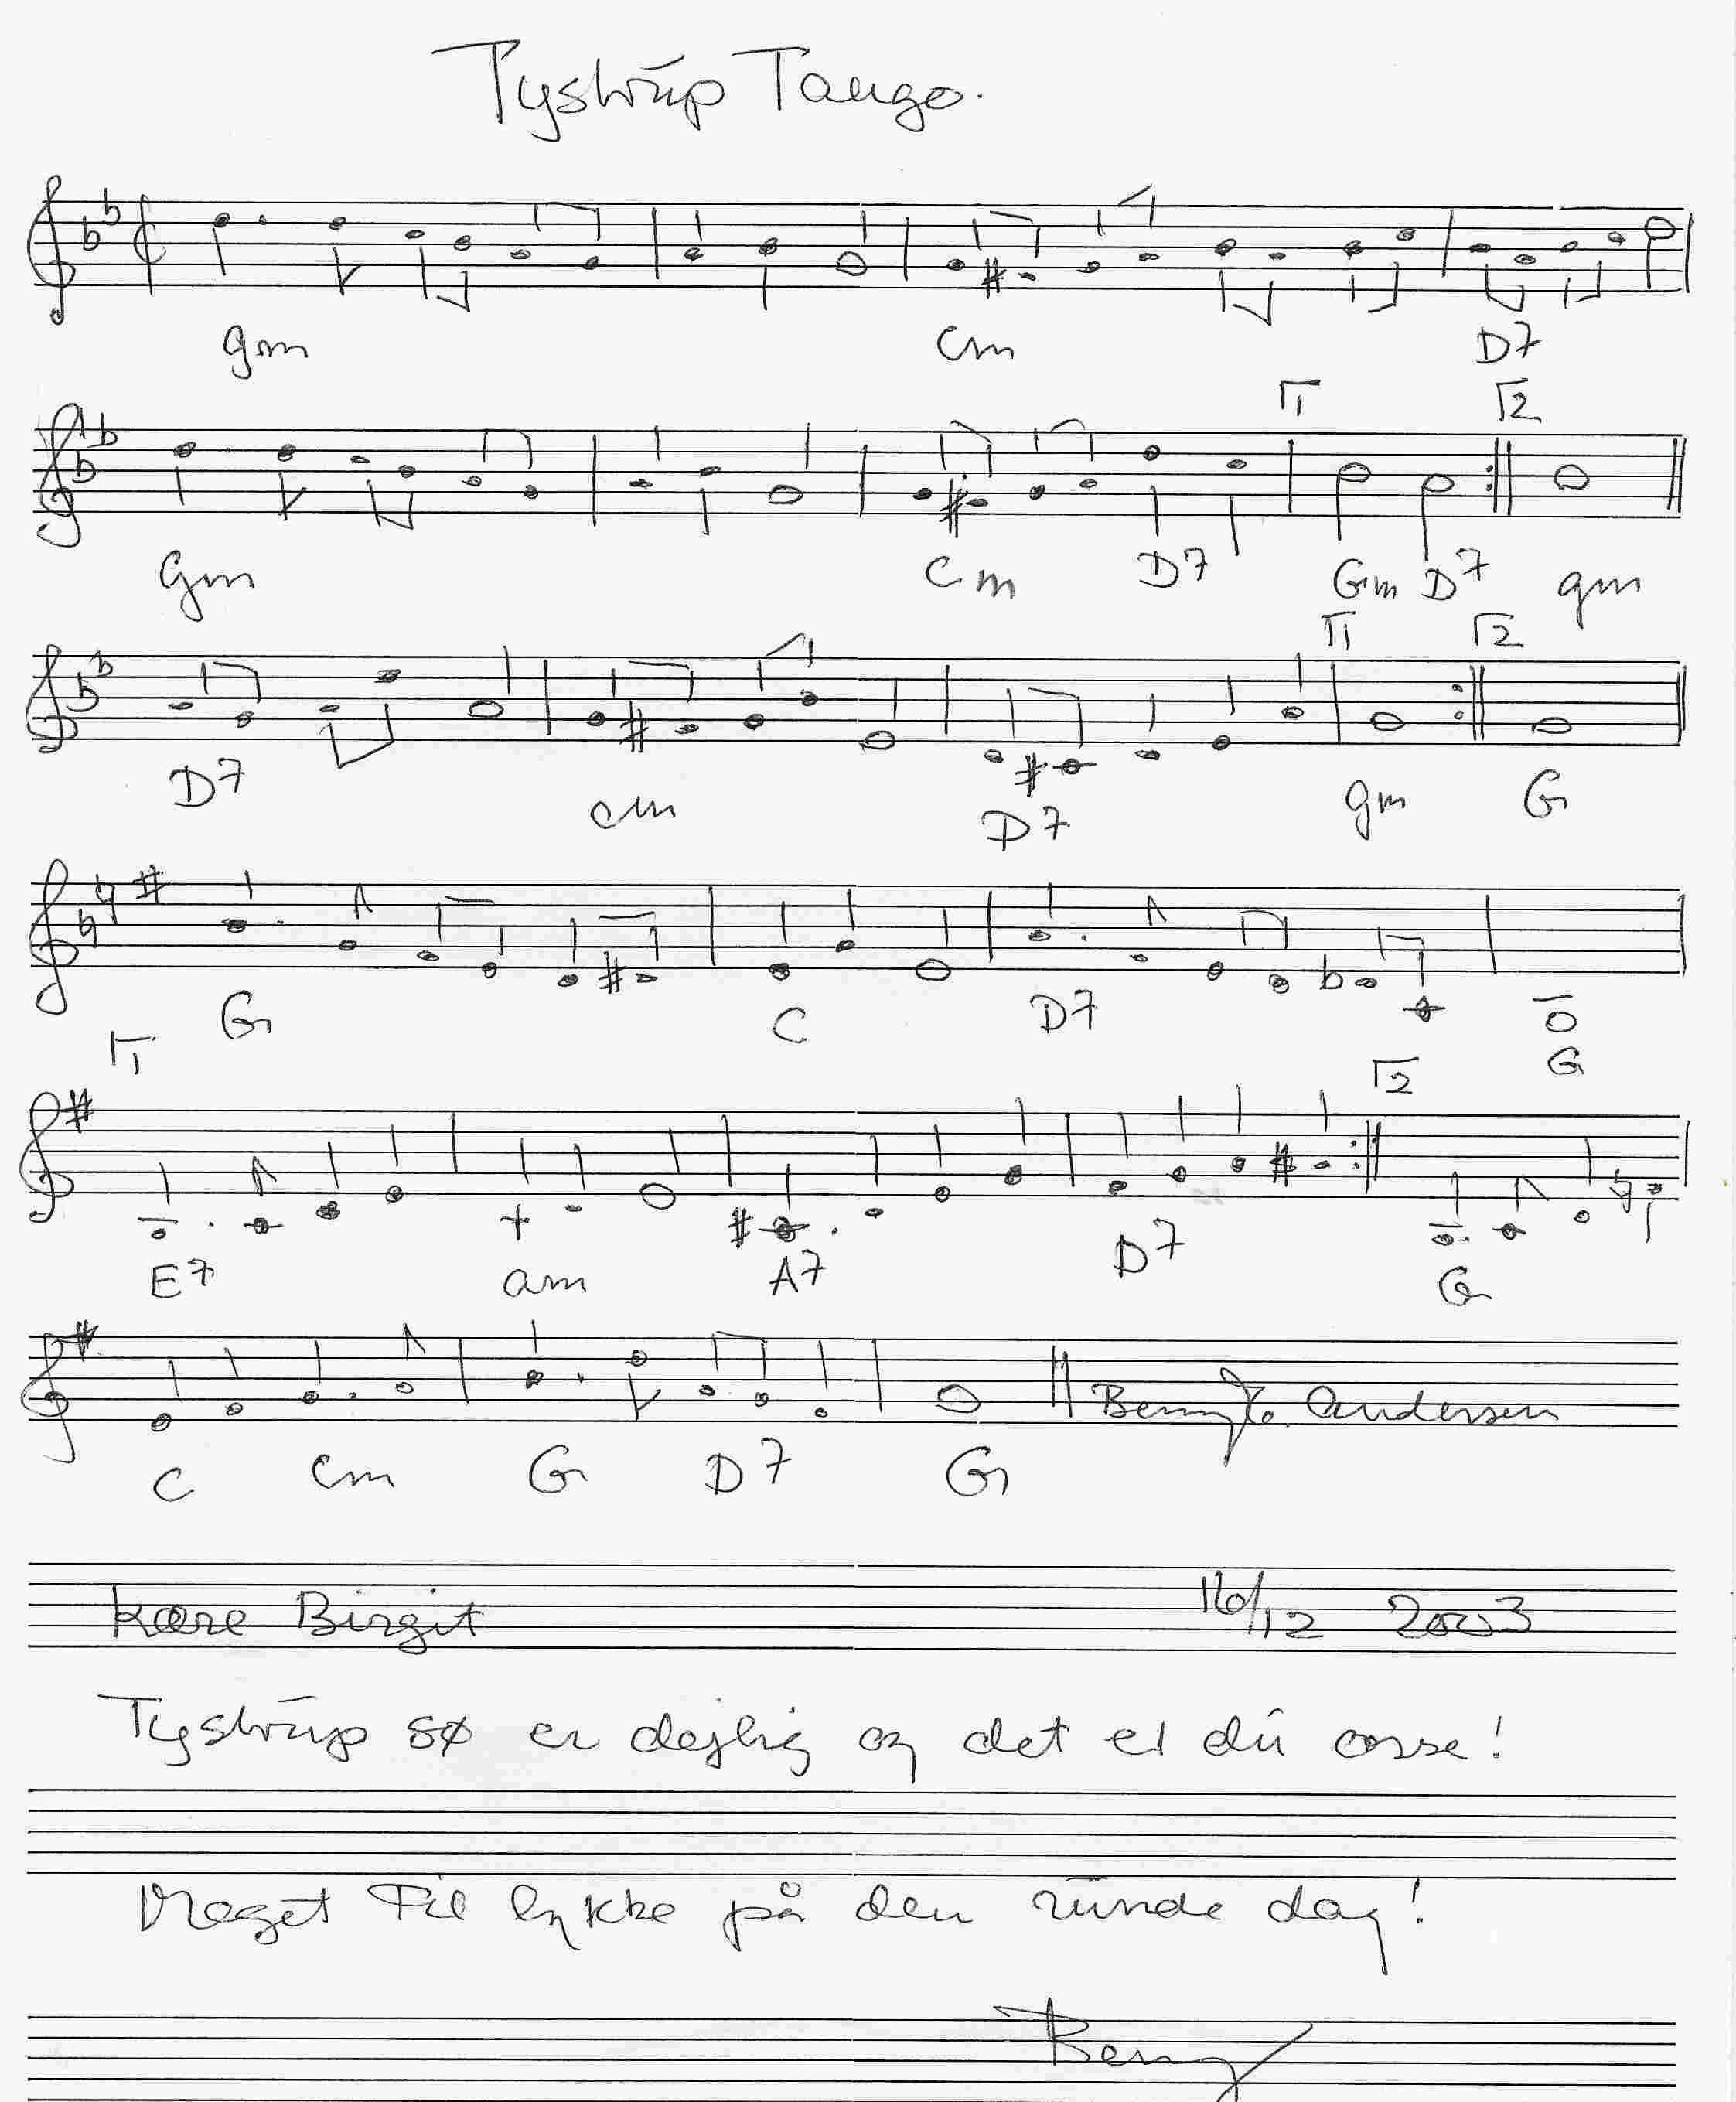 Tystrup Tango.
gm Cm D7
1 2
Gm Cm D7 Gm D7 gm
1 2
D7 cm D7 gm G
G C D7 G
1 2
E7 am A7 D7 G
Benny Andersen
C Cm G D7 G
Kære Birgit 16/12 2003
Tystrup sø er dejlig og det er du osse!
Meget Til lykke på den runde dag!
Benny